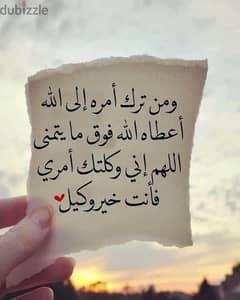 dubizzle
ومن ترك أمره إلى الله
أعطاه الله فوق ما يتمنى
اللهم إني وكلتك أمري
فأنت خير وكيل